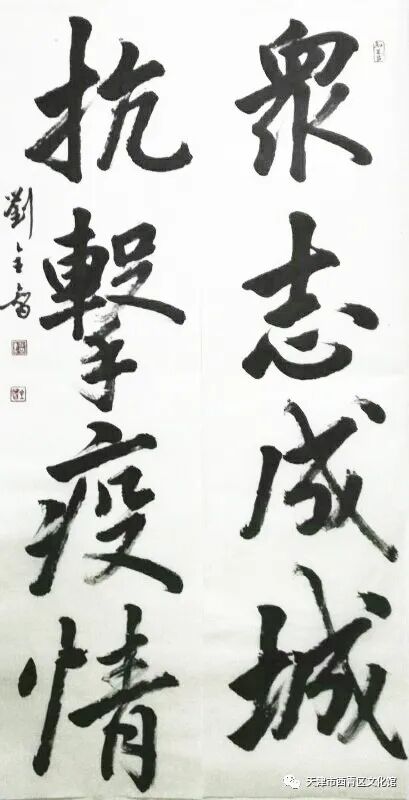 眾志成城
抗擊疫情
劉金
天津市西青区文化馆